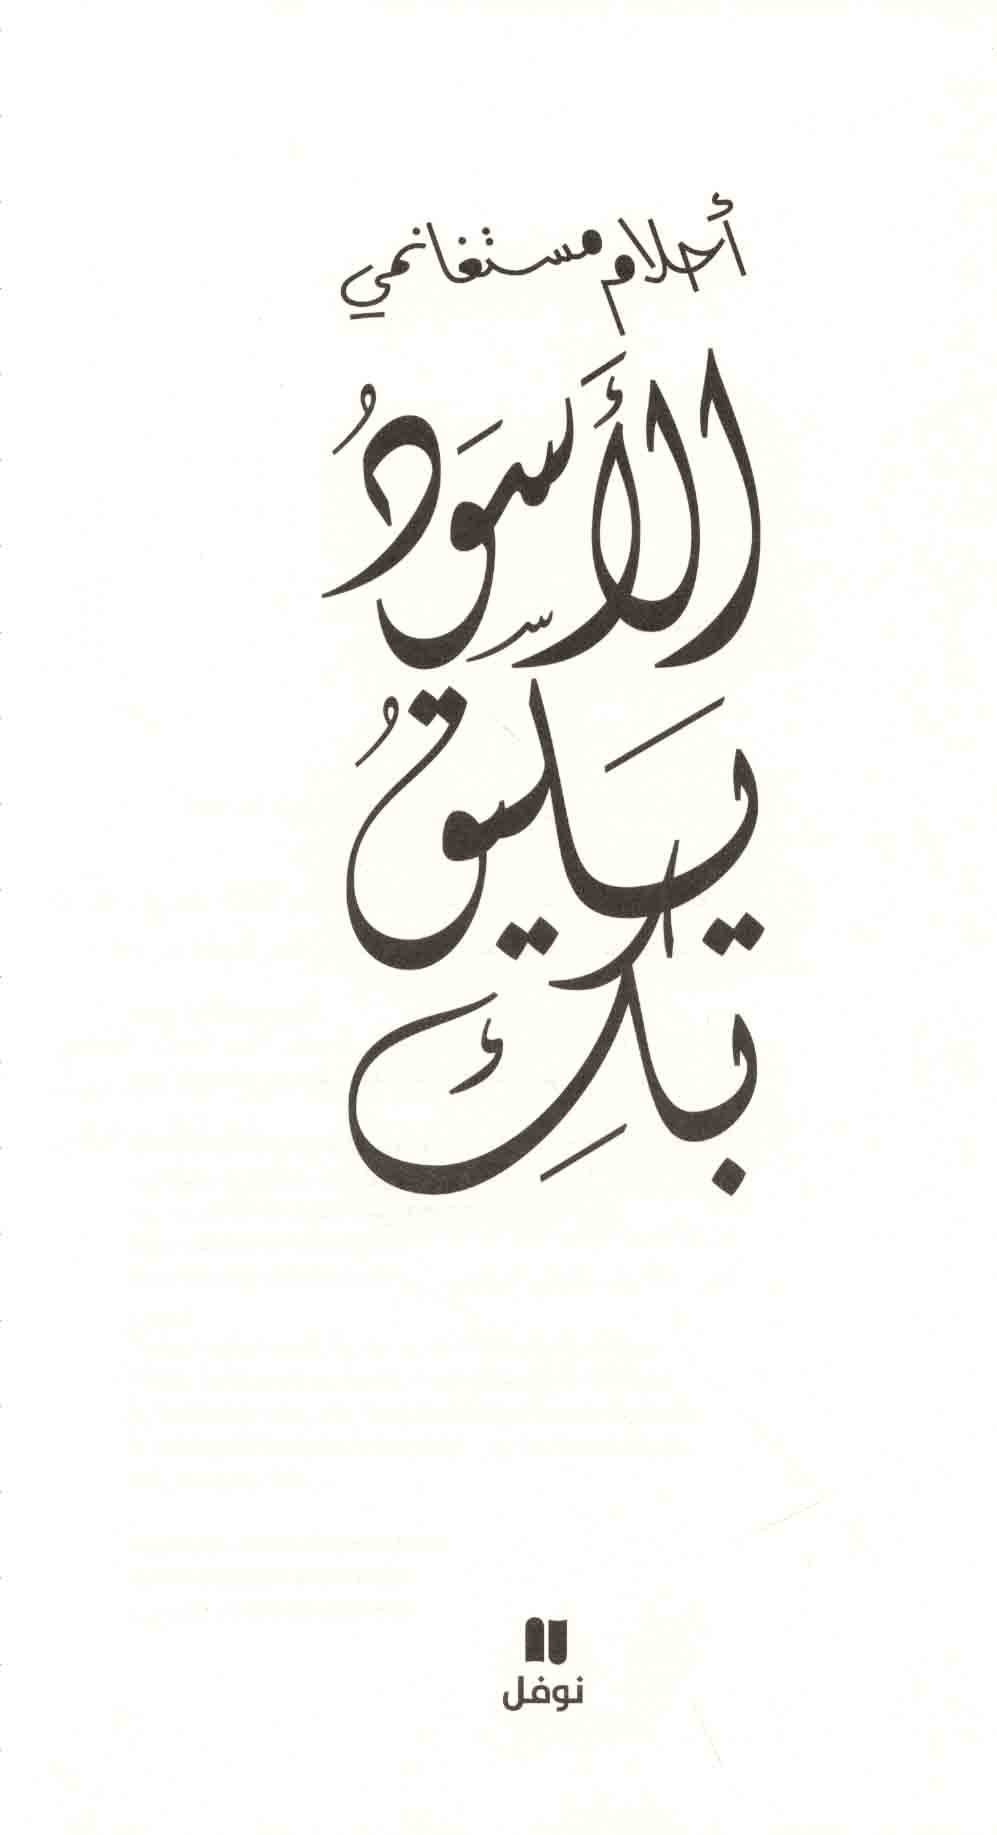 أحلام مستغانمي
الأَسْوَدُ
يَليقُ
بكِ
نوفل